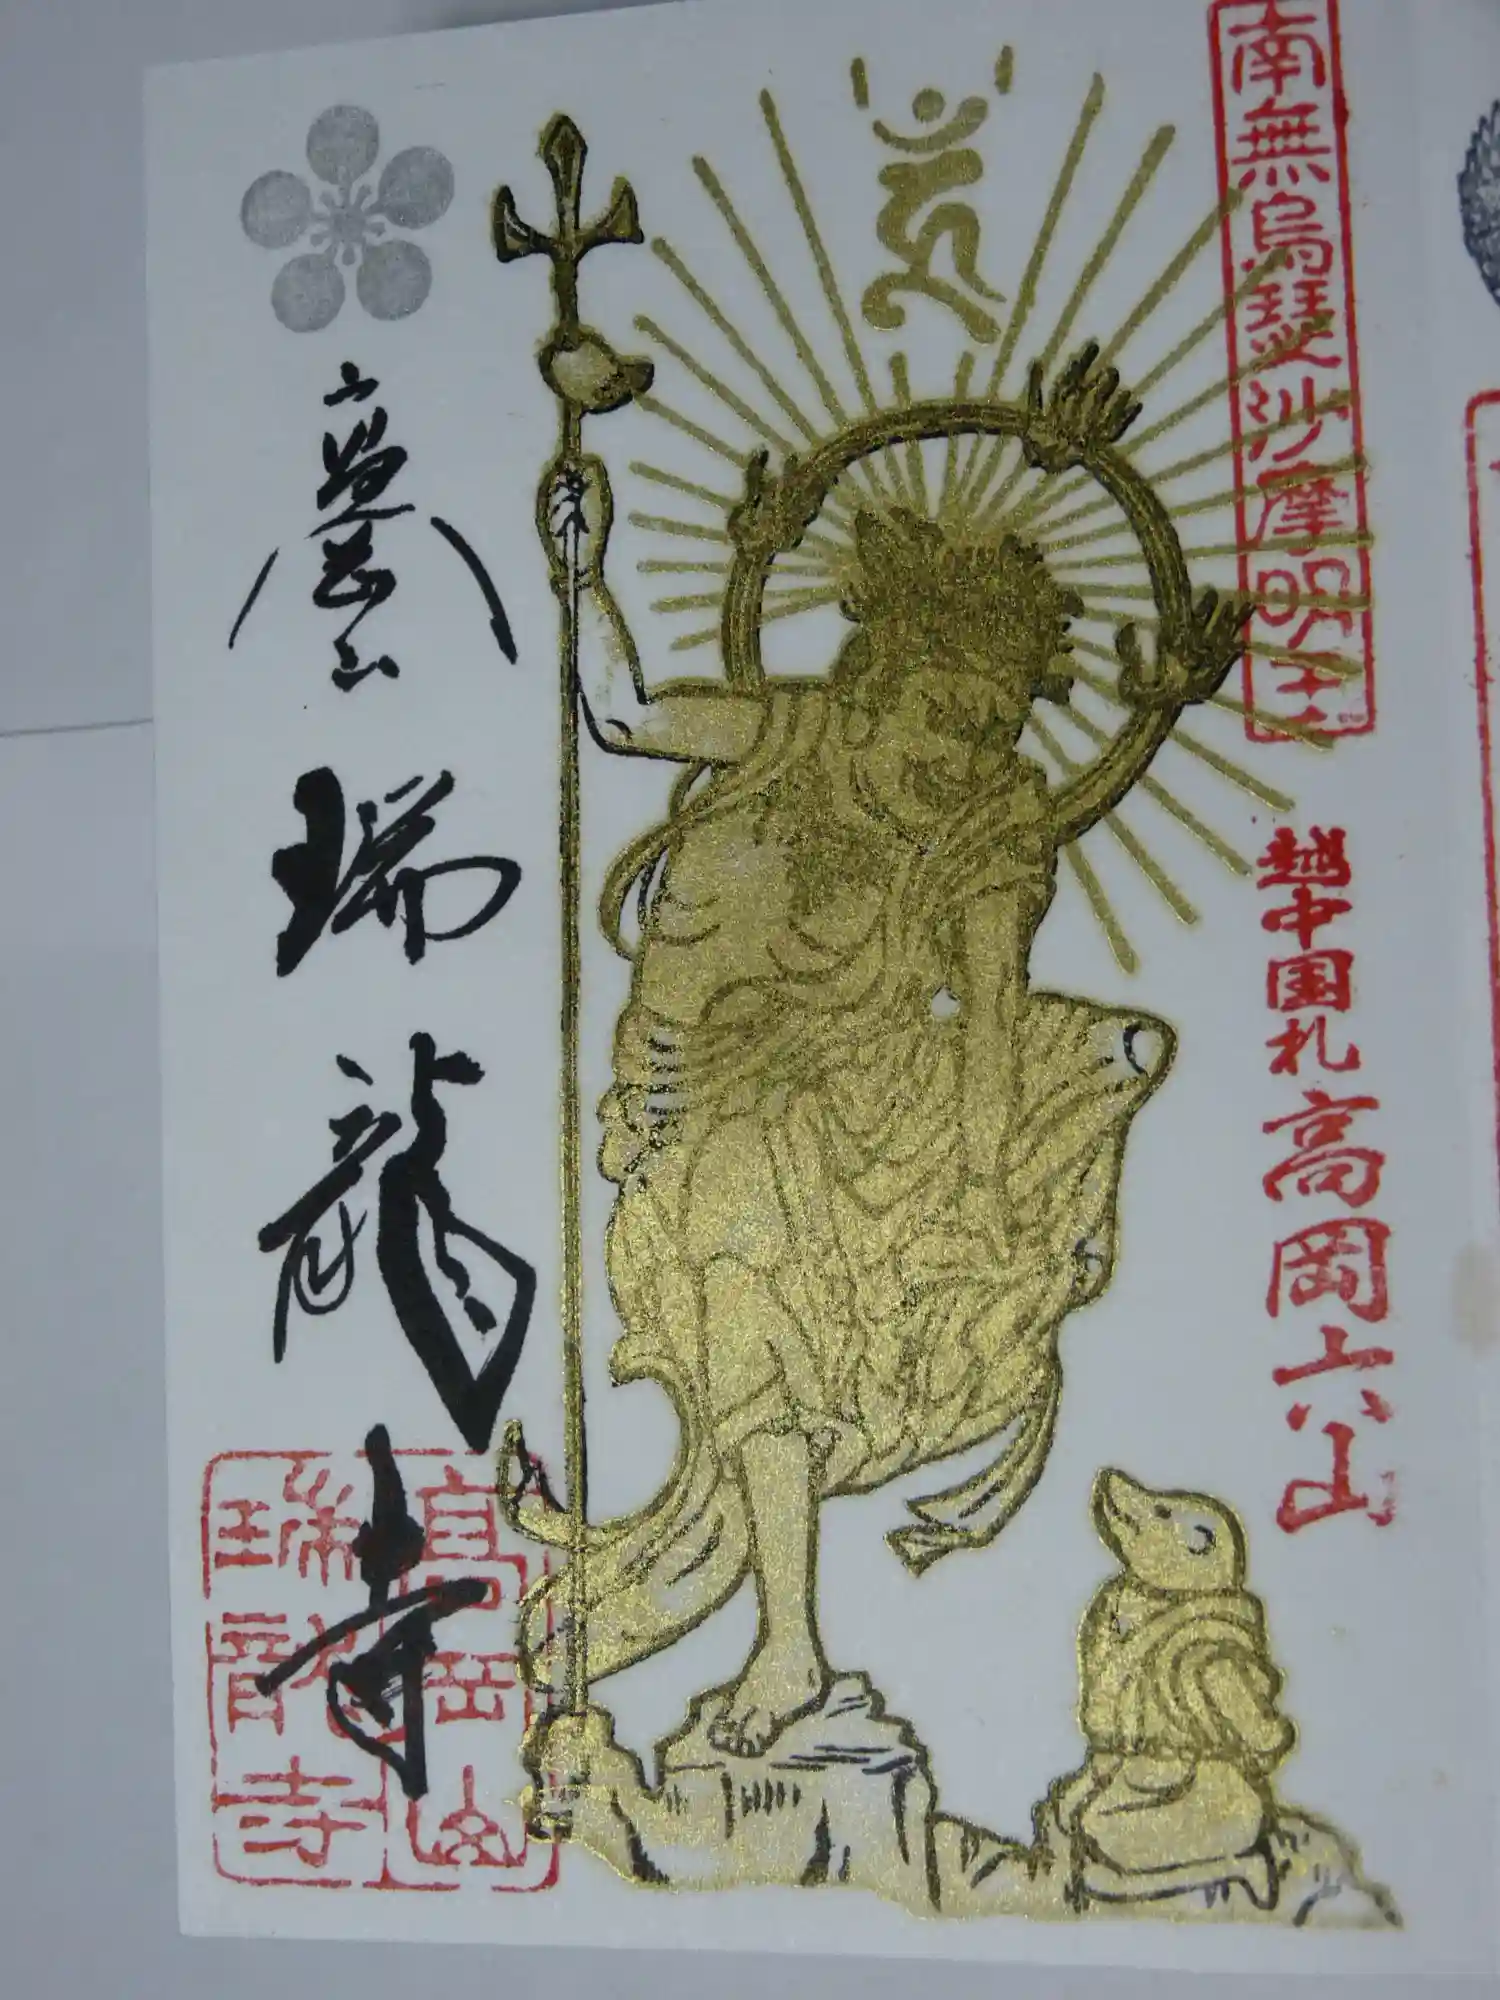 南無烏瑟沙摩明王
越中国札
高岡六山
高岡山
瑞龍寺
高岡山
瑞龍寺